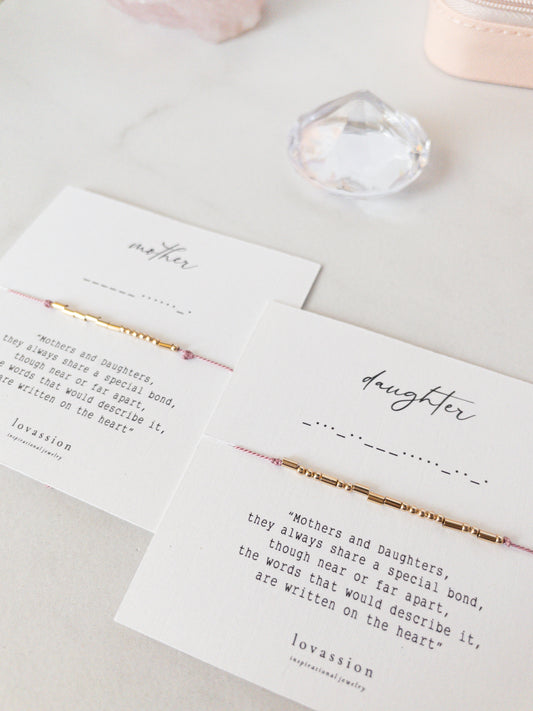 mother
______ ......_.
"Mothers and Daughters,
they always share a special bond,
though near or far apart,
the words that would describe it,
are written on the heart"
lovassion
inspirational jewelry
daughter
_..._..___....._.._.
"Mothers and Daughters,
they always share a special bond,
though near or far apart,
the words that would describe it,
are written on the heart"
lovassion
inspirational jewelry